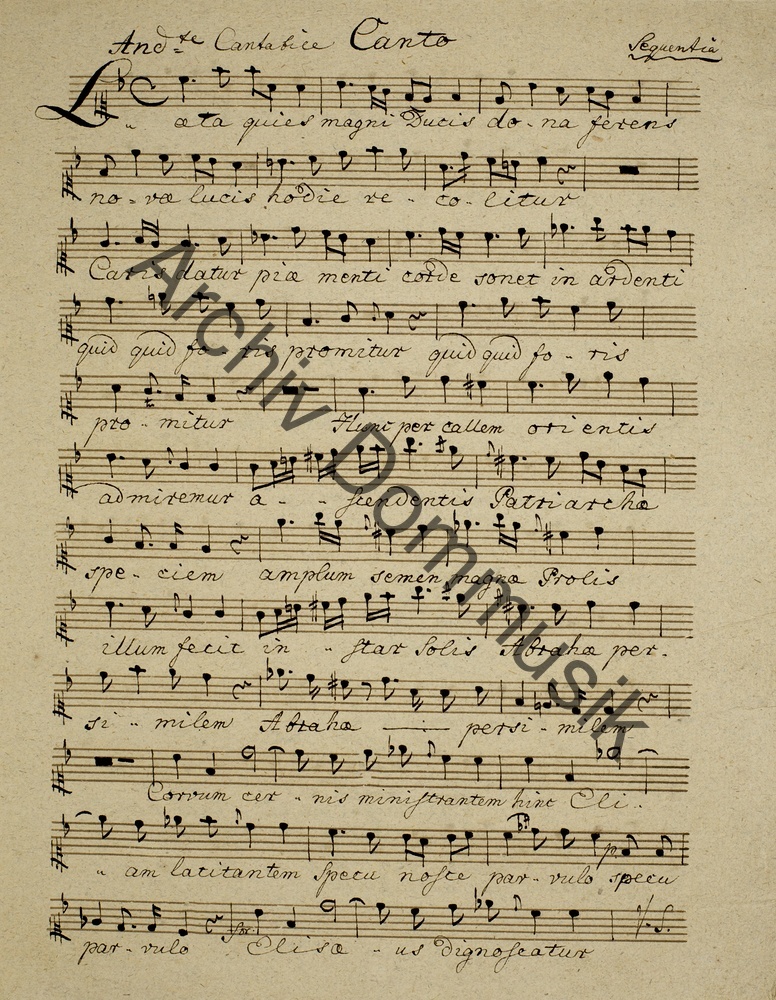 And.te Cantabice Canto Sequentia
Laeta quies magni Ducis do - na ferens
no - vae lucis hodie re - co - litur
Caris datur piae menti corde sonet in ardenti
quid quid fo - ris promitur quid quid fo - ris
pro - mitur Hunc per callem orientis
admiremur a - - scendentis Patriarchae
spe - ciem amplum semen magnae Prolis
illum fecit in - star Solis Abrahae per -
si - milem Abrahae persi - milem
Corvum cer - nis ministrantem hinc Eli -
am latitantem Specu nosce par - vulo specu
p.
par - vulo Elisae - us dignoscatur
for.
V. S.
Archiv Dommusik